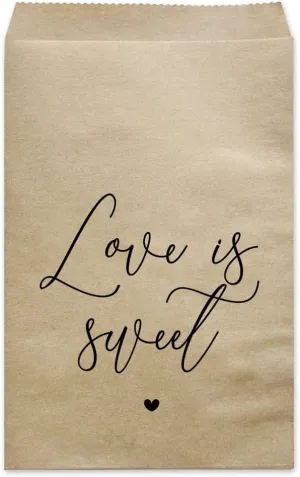 Love is
sweet